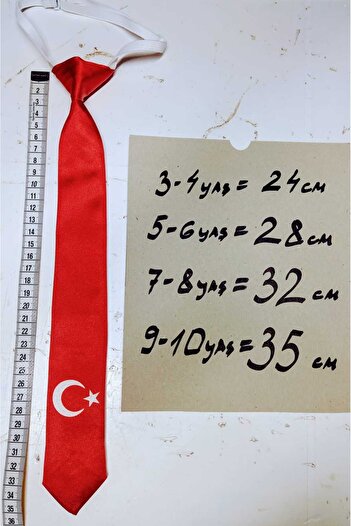 3-4 yaş = 24 cm
5-6 yaş = 28 cm
7-8 yaş = 32 cm
9-10 yaş = 35 cm
2
3
4
5
6
7
8
9
10
11
12
13
14
15
16
17
18
19
20
21
22
23
24
25
26
27
28
29
30
31
32
33
34
35